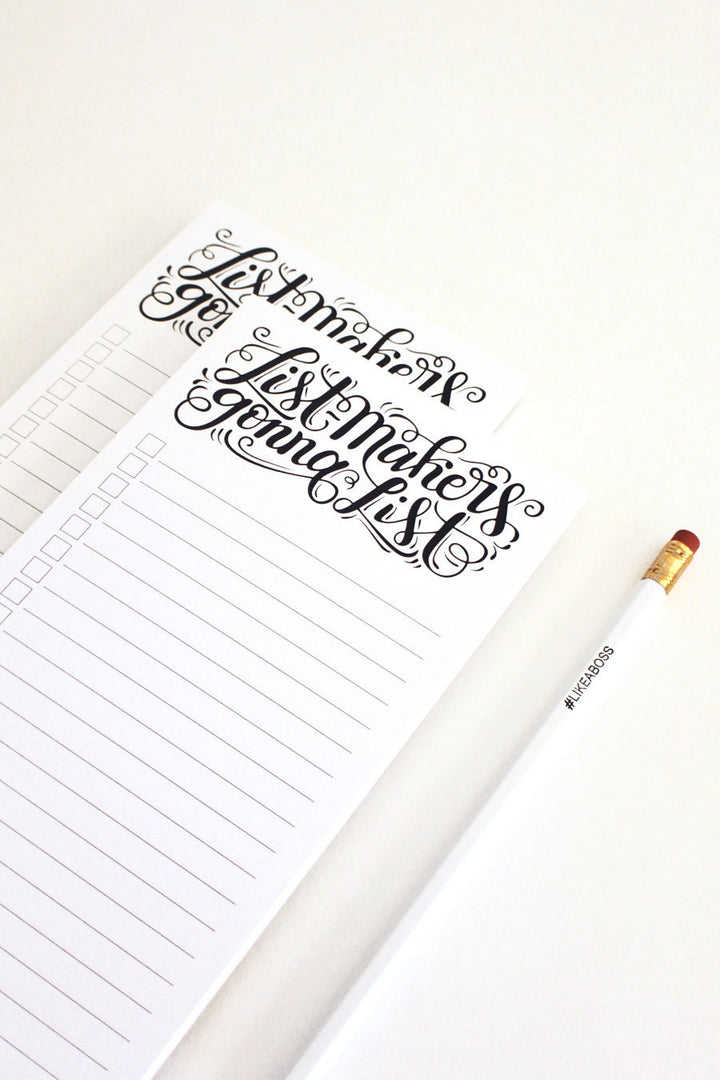 List-Makers
gon
List-Makers
gonna List
#LIKEABOSS